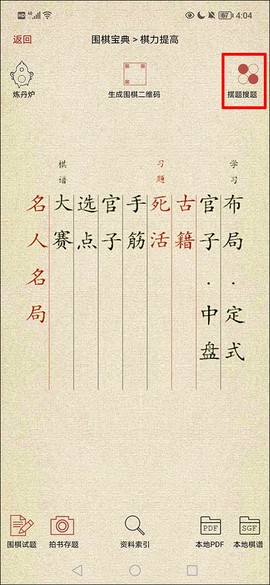 4:04
返回
围棋宝典 > 棋力提高
炼丹炉
生成围棋二维码
摆题搜题
学习
布局·定式
官子·中盘
古籍
习题
死活
手筋
官子
选点
棋谱
大赛
名人名局
围棋试题
拍书存题
资料索引
PDF
本地PDF
SGF
本地棋谱